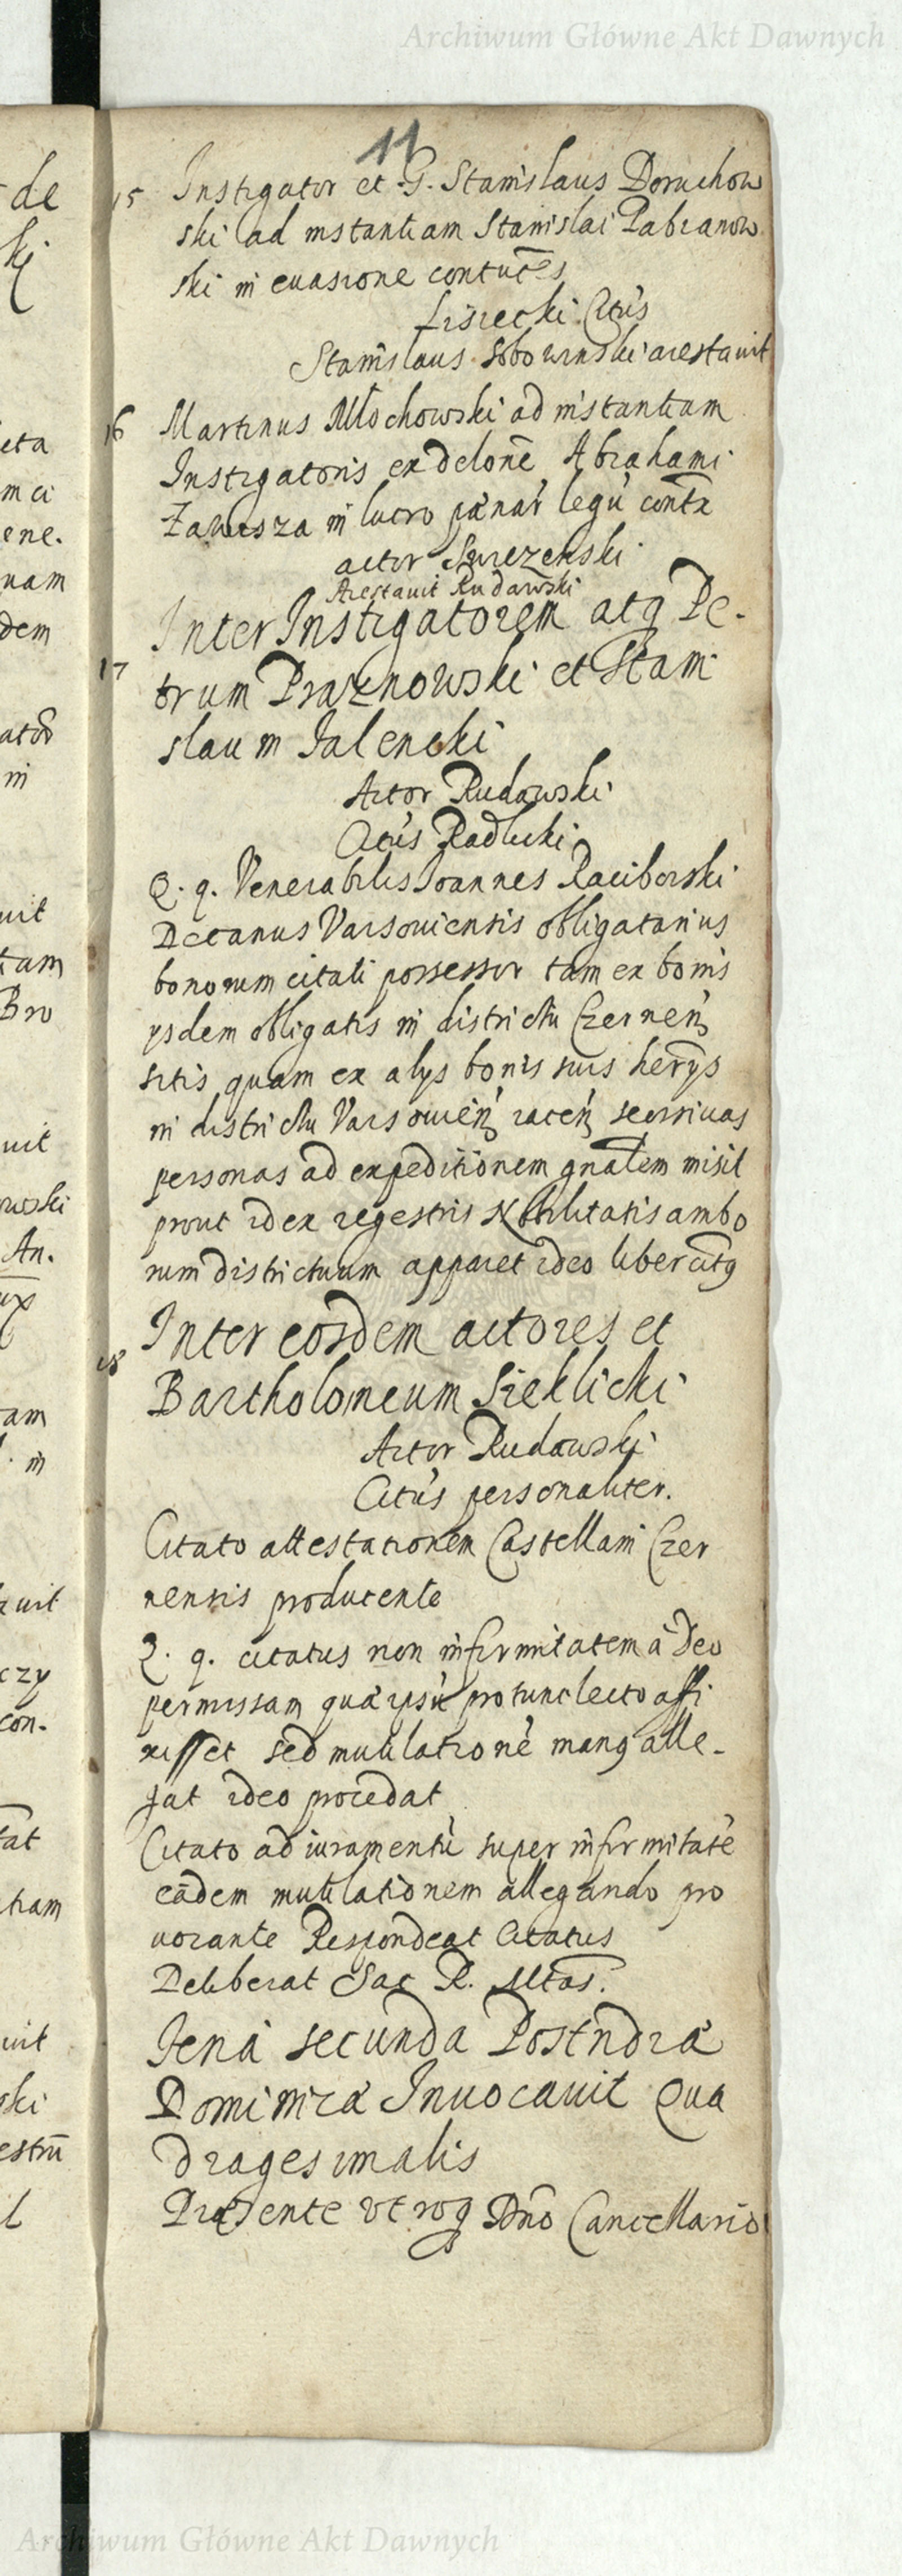 Archiwum Główne Akt Dawnych
11
15 Instigator et G. Stanislaus Doruchow
ski ad instantiam Stanislai Pabianow
ski in euasione contuces
Lisiecki Citus
Stanislaus Sobowinski arestauit
16 Martinus Mlochowski ad instantiam
Instigatoris ex delone Abrahami
Zawisza in lucro paenar legu contx
actor
Arestauit Rudawski
Inter Instigatorem atq Pe-
17 trum Praznowski et Stani
slaum Jalencki
Actor Rudawski
Citus Radlicki
Q. q. Venerabilis Joannes Raciborski
Decanus Varsouiensis obligatarius
bonorum citati possessor tam ex bonis
ysdem obligatis in districtu Czernen
sitis quam ex alys bonis suis herys
in districtu Varsouien iacen
personas ad expeditionem gnalem misit
prout id ex regestris Nobilitatis ambo
rum districtuum apparet ideo liber citg
18 Inter eosdem actores et
Bartholomeum Sieklicki
Actor Rudawski
Citus personaliter.
Citato attestationem Castellani Czer
nensis producente
Q. q. citatus non infirmitatem a Deo
permissam qua ipsu protunc lecto affi
xisset sed mutilatione mang alle-
gat ideo procedat
Citato ad iuramentu super infirmitate
eadem mutilationem allegando pro
uocante Respondeat Citatus
Deliberat Sac R. Mtas.
Feria secunda Postndra
Dominica Inuocauit Qua
dragesimalis
Praesente vtroq Dno Cancellario
Archiwum Główne Akt Dawnych